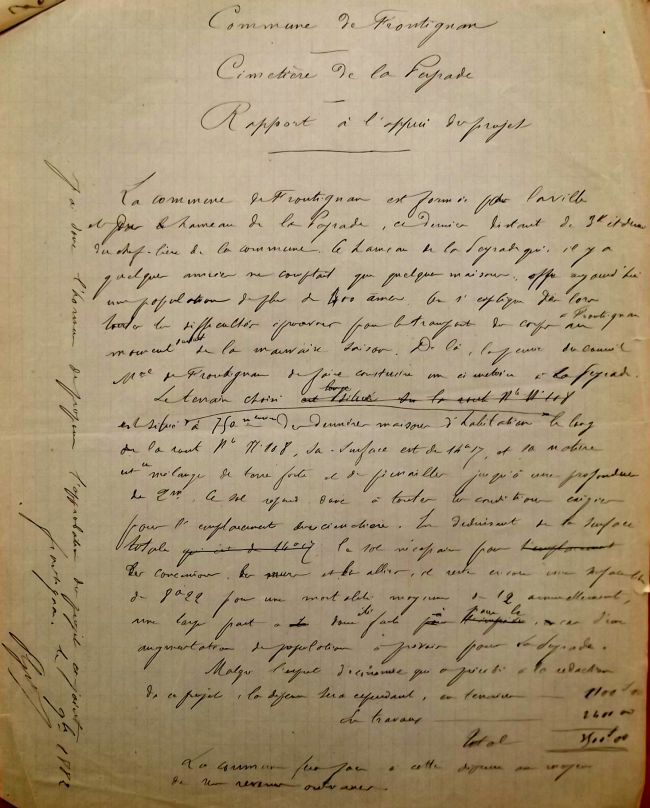 Commune de Frontignan
Cimetière de la Peyrade
Rapport à l'appui du projet
La commune de Frontignan est formée par la ville
et par le hameau de la Peyrade, ce dernier distant de 3 et demi
du chef-lieu de la commune. Ce hameau de la Peyrade qui, il y a
quelques années ne comptait que quelques maisons, offre aujourd'hui
une population de plus de 400 âmes. On s'explique dès lors
toutes les difficultés éprouvées pour le transfert des corps à Frontignan
au moment de la mauvaise saison. De là, la pensée du conseil
Mal de Frontignan de faire construire un cimetière à la Peyrade.
Le terrain choisi sur la route Nle N° 108
est situé à 750 mètres des dernières maisons d'habitation le long
de la route Nle N° 108, sa surface est de 14a 17, et sa nature
est un mélange de terre forte et de pierrailles jusqu'à une profondeur
de 2m. Ce sol répond donc à toutes les conditions exigées
pour l'emplacement des cimetières. En déduisant de la surface
totale qui est de 14a 17 le sol nécessaire pour l'emplacement
des concessions, les murs et les allées, il reste encore une surface
de 8a 22 pour une mortalité moyenne de 12 annuellement,
une large part a donc été faite pour le cas d'une
augmentation de population à prévoir pour la Peyrade.
Malgré l'esprit d'économie qui a présidé à la rédaction
de ce projet, la dépense sera cependant, en terrains 1100 00
En travaux 2400 00
Total 3500 00
La commune fera face à cette dépense au moyen
de ses revenus ordinaires.
J'ai donc l'honneur de proposer l'approbation du projet ci-joint
Frontignan, le 9bre 1882